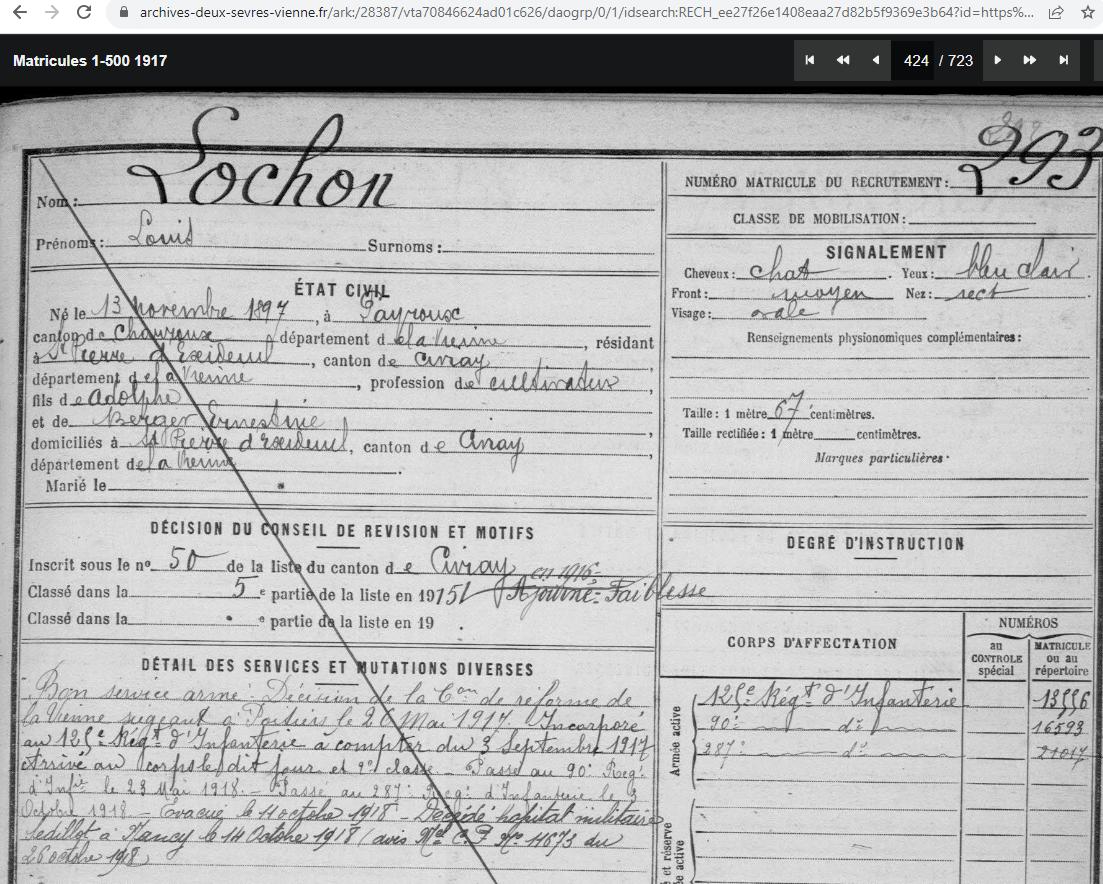 archives-deux-sevres-vienne.fr/ark:/28387/vta70846624ad01c626/daogrp/0/1/idsearch:RECH_ee27f26e1408eaa27d82b5f9369e3b64?id=https%...
Matricules 1-500 1917
424 / 723
Nom: Lochon
Prénoms: Louis Surnoms:
ÉTAT CIVIL
Né le 13 novembre 1897, à Payroux
canton de Charroux département de la Vienne, résidant
à St Pierre d'Exideuil, canton de Civray
département de la Vienne, profession de cultivateur
fils de Adolphe
et de Berger Ernestine
domiciliés à St Pierre d'Exideuil, canton de Civray
département de la Vienne
Marié le
DÉCISION DU CONSEIL DE REVISION ET MOTIFS
Inscrit sous le no 50 de la liste du canton de Civray
Classé dans la 5 e partie de la liste en 1915 Ajourné Faiblesse en 1916
Classé dans la e partie de la liste en 19 .
DÉTAIL DES SERVICES ET MUTATIONS DIVERSES
Bon service armé. Décision de la Con de réforme de
la Vienne siégeant à Poitiers le 26 Mai 1917. Incorporé
au 125e Régt d'Infanterie à compter du 3 Septembre 1917
Arrivé au corps le dit jour et 2e classe - Passé au 90e Regt
d'Infie le 23 Mai 1918. - Passé au 287e Regt d'Infanterie le 3
Octobre 1918 - Evacué le 4 octobre 1918 - Décédé hopital militaire
Sédillot à Nancy le 14 Octobre 1918 (avis No 4673 du
26 octobre 1918)
293
NUMÉRO MATRICULE DU RECRUTEMENT:
CLASSE DE MOBILISATION:
SIGNALEMENT
Cheveux: chat. Yeux: bleu clair
Front: moyen Nez: rect
Visage: ovale
Renseignements physionomiques complémentaires:
Taille: 1 mètre 67 centimètres.
Taille rectifiée: 1 mètre centimètres.
Marques particulières
DEGRÉ D'INSTRUCTION
CORPS D'AFFECTATION
NUMÉROS
au CONTROLE spécial
MATRICULE ou au répertoire
Armée active
125e Régt d'Infanterie 13556
90e do 16593
287e do 21017
et réserve
active